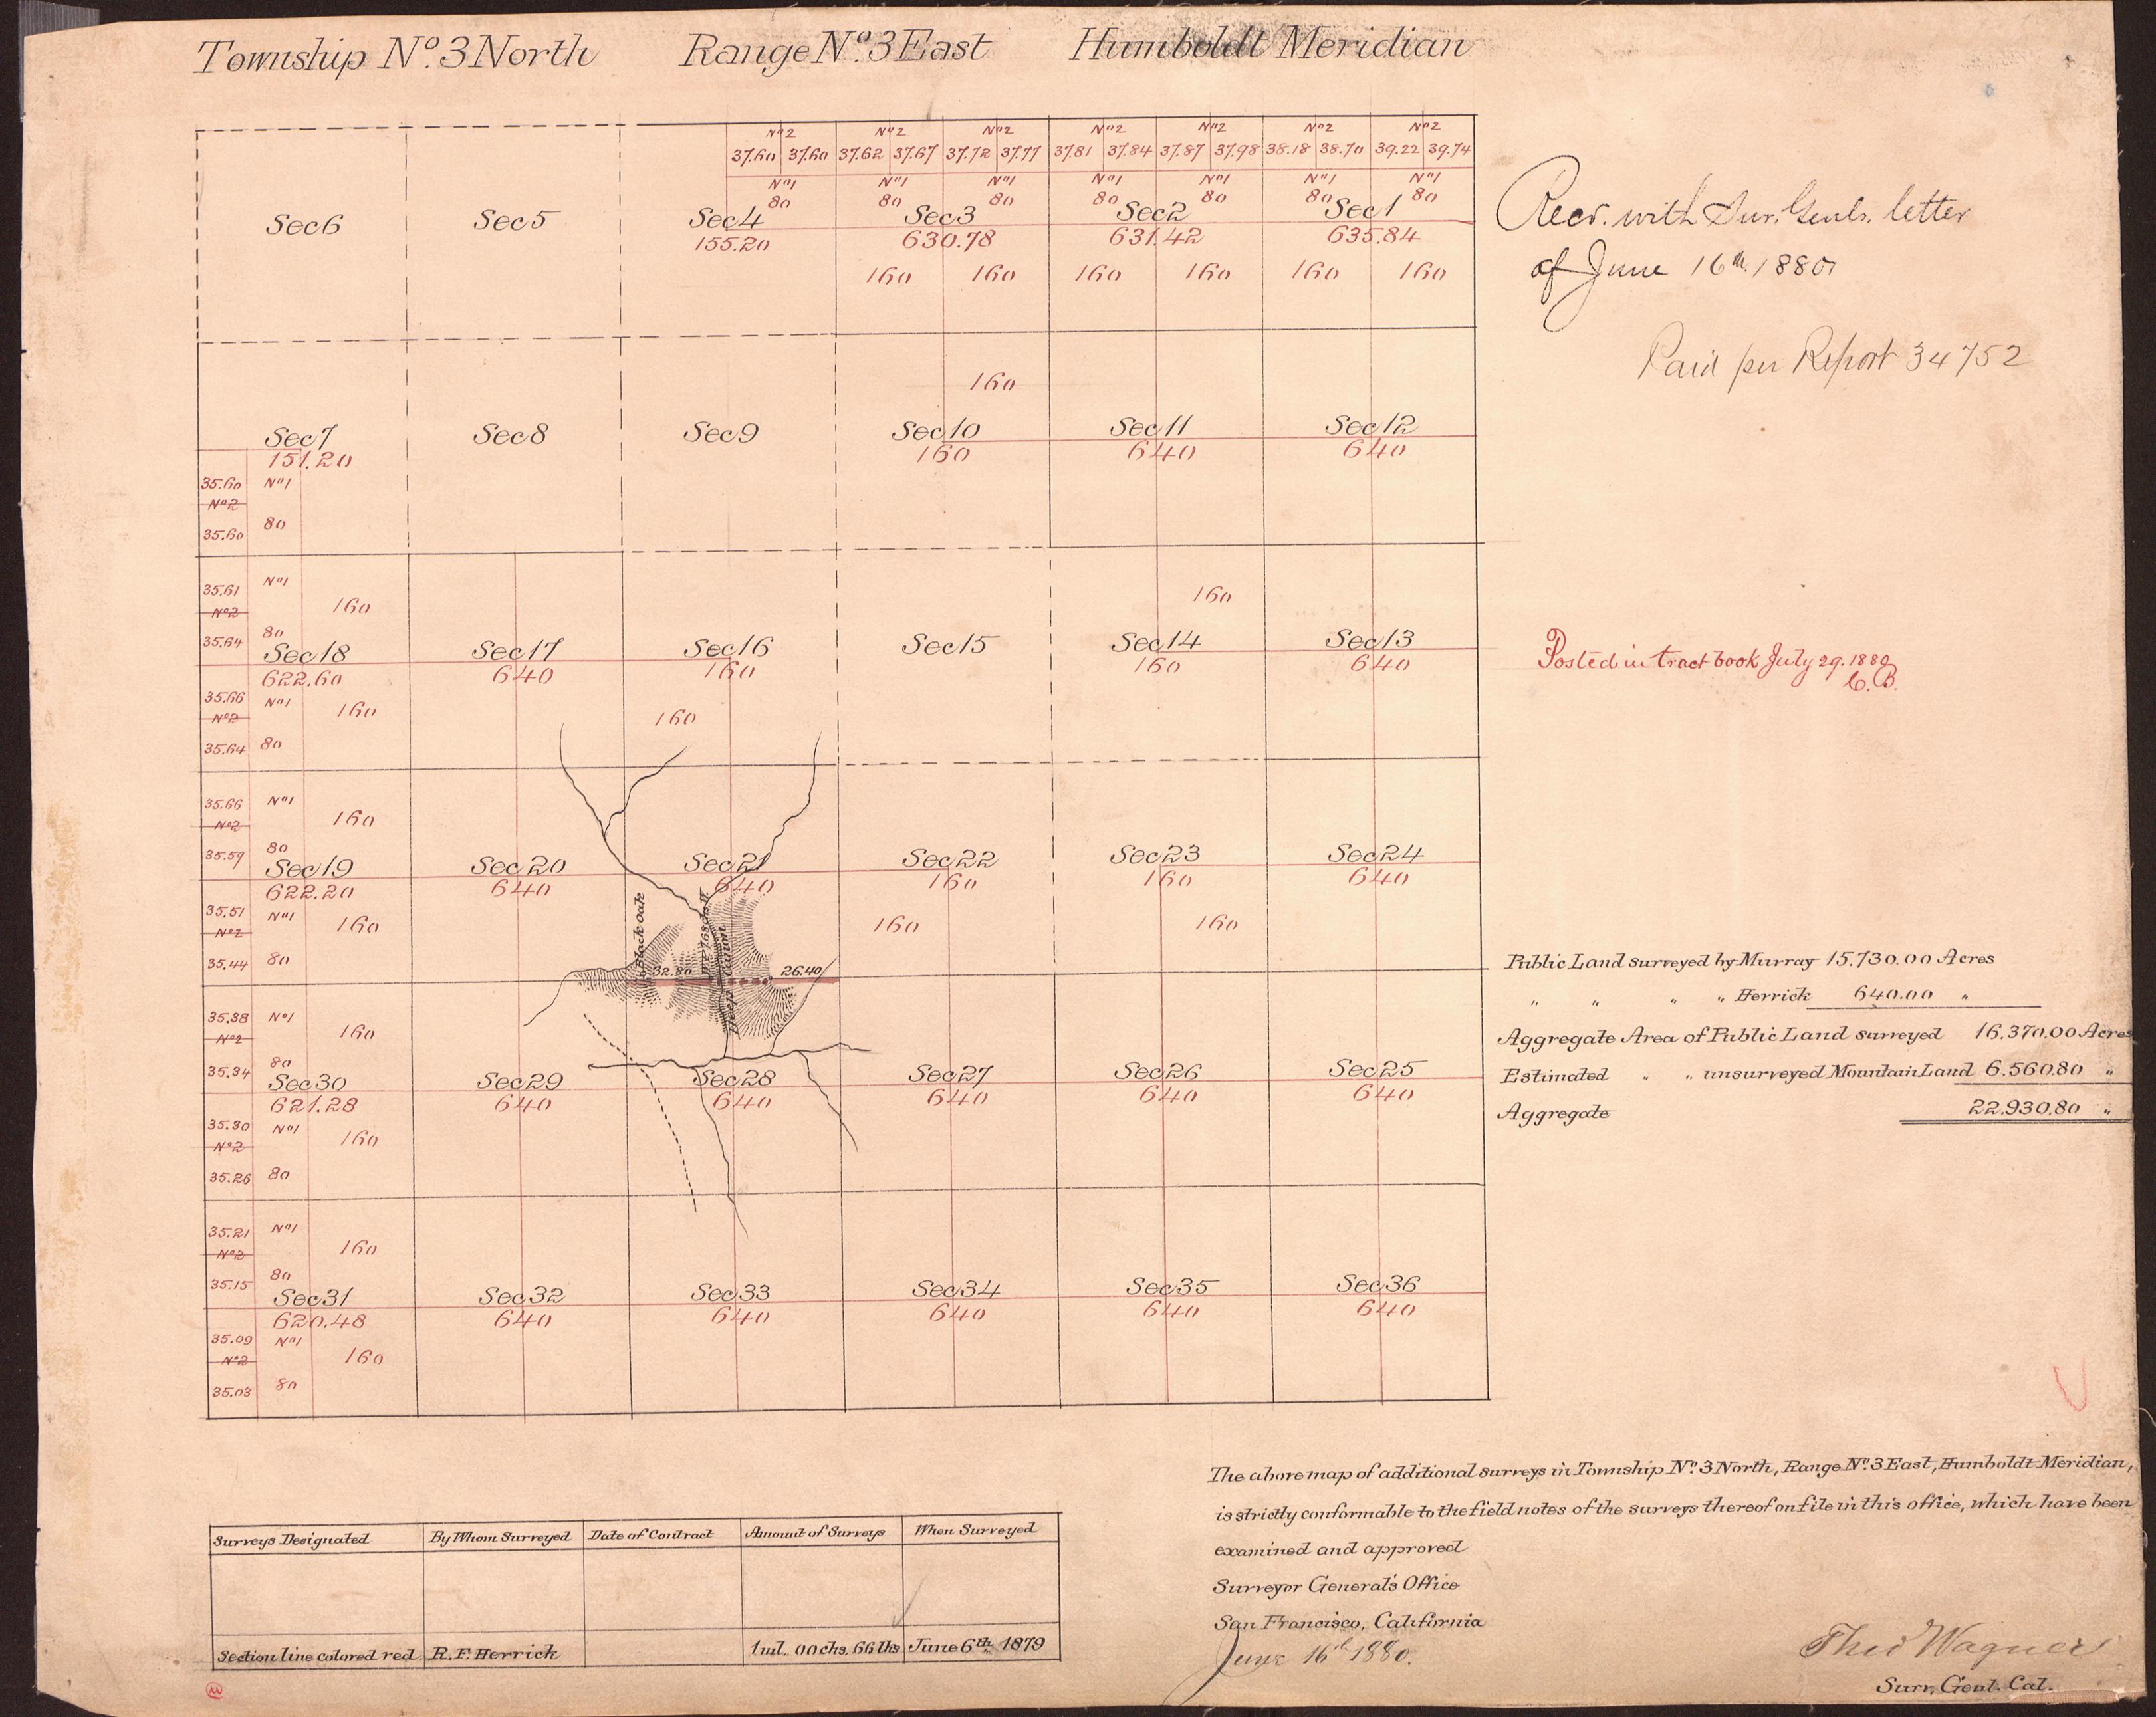 Township No. 3 North Range No. 3 East Humboldt Meridian
No2 No2 No2 No2 No2 No2 No2
37.60 37.60 37.62 37.67 37.72 37.77 37.81 37.84 37.87 37.98 38.18 38.70 39.22 39.74
No1 No1 No1 No1 No1 No1 No1
80 80 80 80 80 80 80
Sec 6 Sec 5 Sec 4 Sec 3 Sec 2 Sec 1
155.20 630.78 631.42 635.84
160 160 160 160 160 160
Recd. with Sur. Genls. letter
of June 16th 1880
Paid per Report 34752
160
Sec 7 Sec 8 Sec 9 Sec 10 Sec 11 Sec 12
151.20 160 640 640
35.60 No1
No2
35.60 80
35.61 No1
No2 160 160
35.64 80
Sec 18 Sec 17 Sec 16 Sec 15 Sec 14 Sec 13
622.60 640 160 160 640
Posted in tract book July 29. 1880
C. B.
35.66 No1
No2 160 160
35.64 80
35.66 No1
No2 160
35.59 80
Sec 19 Sec 20 Sec 21 Sec 22 Sec 23 Sec 24
622.20 640 640 160 160 640
35.51 No1
No2 160 160 160
35.44 80
Black Oak
Deep Canon
32.80 26.40
Public Land surveyed by Murray 15.730.00 Acres
" " " " Herrick 640.00 "
Aggregate Area of Public Land surveyed 16.370.00 Acres
Estimated " " unsurveyed Mountain Land 6.560.80 "
Aggregate 22.930.80 "
35.38 No1
No2 160
35.34 80
Sec 30 Sec 29 Sec 28 Sec 27 Sec 26 Sec 25
621.28 640 640 640 640 640
35.30 No1
No2 160
35.26 80
35.21 No1
No2 160
35.15 80
Sec 31 Sec 32 Sec 33 Sec 34 Sec 35 Sec 36
620.48 640 640 640 640 640
35.09 No1
No2 160
35.03 80
Surveys Designated By Whom Surveyed Date of Contract Amount of Surveys When Surveyed
Section line colored red R. F. Herrick 1 ml. 00 chs. 66 lks June 6th 1879
The above map of additional surveys in Township No. 3 North, Range No. 3 East, Humboldt Meridian,
is strictly conformable to the field notes of the surveys thereof on file in this office, which have been
examined and approved
Surveyor General's Office
San Francisco, California
June 16th 1880.
Theo Wagner
Surv. Genl. Cal.